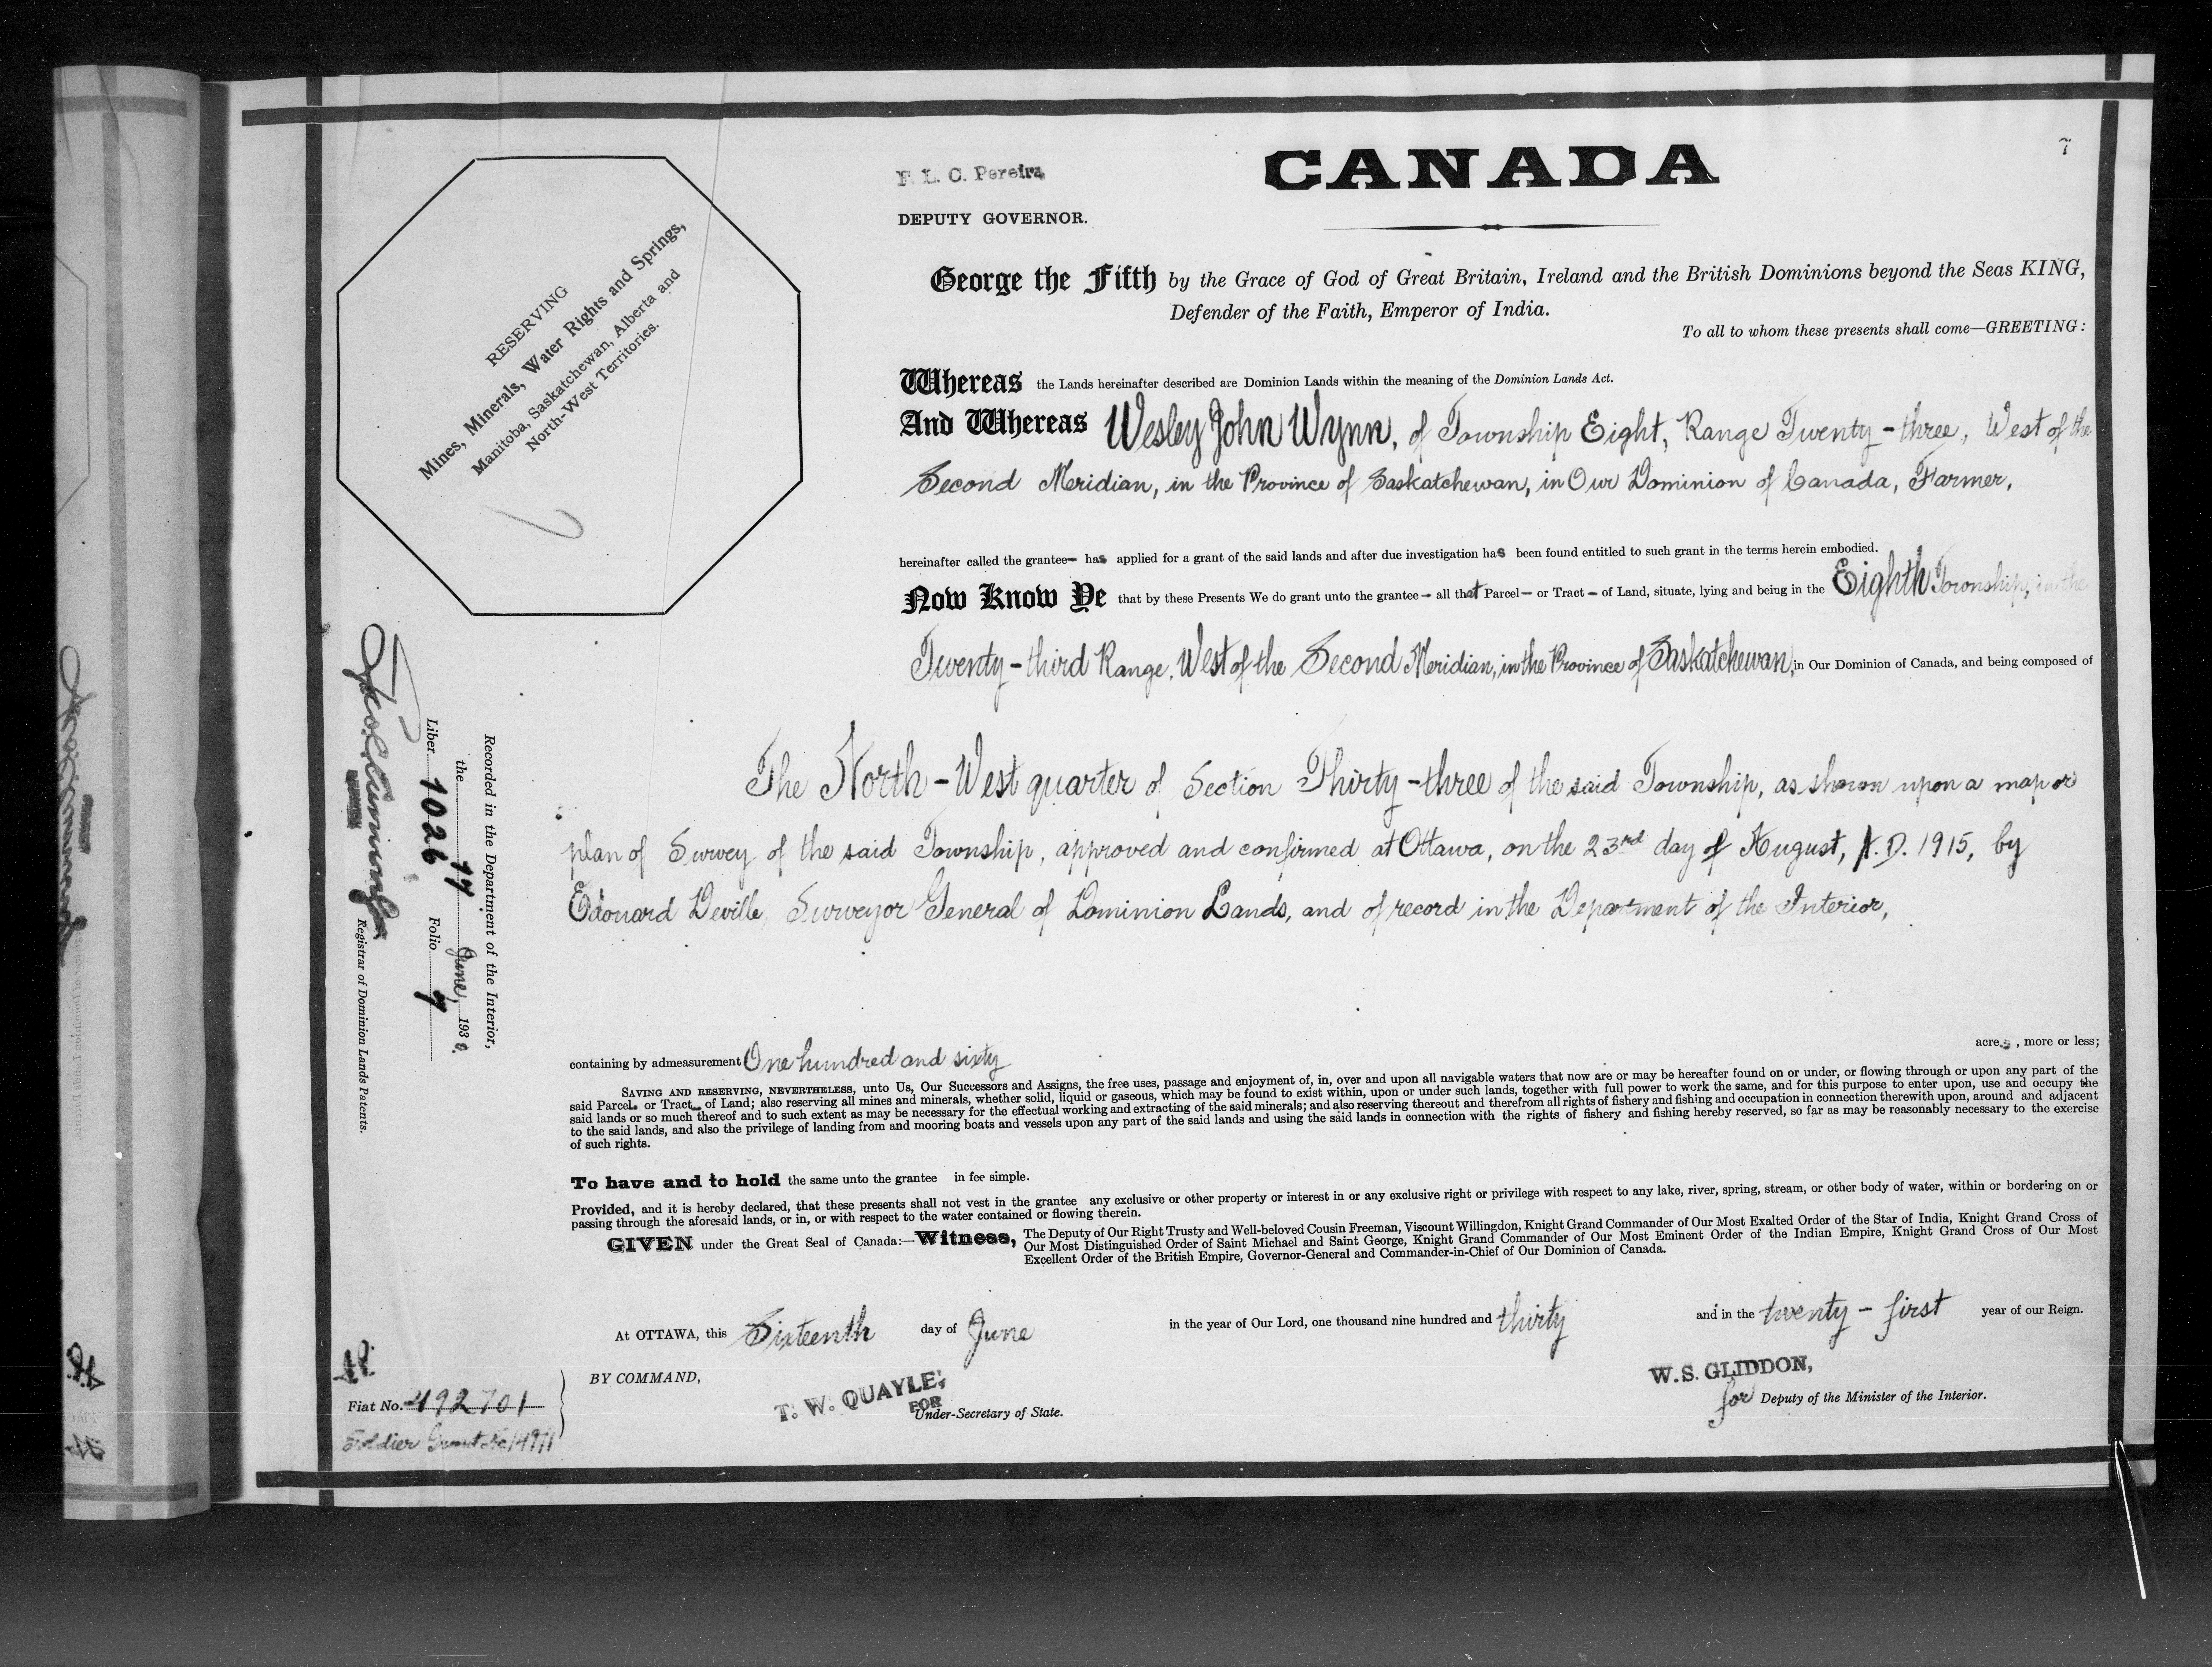 7
F. L. C. Pereira
CANADA
DEPUTY GOVERNOR.
RESERVING
Mines, Minerals, Water Rights and Springs,
Manitoba, Saskatchewan, Alberta and
North-West Territories.
George the Fifth by the Grace of God of Great Britain, Ireland and the British Dominions beyond the Seas KING,
Defender of the Faith, Emperor of India.
To all to whom these presents shall come—GREETING:
Whereas the Lands hereinafter described are Dominion Lands within the meaning of the Dominion Lands Act.
And Whereas Wesley John Wynn, of Township Eight, Range Twenty-three, West of the
Second Meridian, in the Province of Saskatchewan, in Our Dominion of Canada, Farmer,
hereinafter called the grantee— has applied for a grant of the said lands and after due investigation has been found entitled to such grant in the terms herein embodied.
Now Know Ye that by these Presents We do grant unto the grantee— all that Parcel— or Tract— of Land, situate, lying and being in the Eighth Township, in the
Twenty-third Range, West of the Second Meridian, in the Province of Saskatchewan, in Our Dominion of Canada, and being composed of
The North-West quarter of Section Thirty-three of the said Township, as shown upon a map or
plan of Survey of the said Township, approved and confirmed at Ottawa, on the 23rd day of August, A.D. 1915, by
Edouard Deville, Surveyor General of Dominion Lands, and of record in the Department of the Interior,
containing by admeasurement One hundred and sixty acres, more or less;
SAVING AND RESERVING, NEVERTHELESS, unto Us, Our Successors and Assigns, the free uses, passage and enjoyment of, in, over and upon all navigable waters that now are or may be hereafter found on or under, or flowing through or upon any part of the
said Parcel— or Tract— of Land; also reserving all mines and minerals, whether solid, liquid or gaseous, which may be found to exist within, upon or under such lands, together with full power to work the same, and for this purpose to enter upon, use and occupy the
said lands or so much thereof and to such extent as may be necessary for the effectual working and extracting of the said minerals; and also reserving thereout and therefrom all rights of fishery and fishing and occupation in connection therewith upon, around and adjacent
to the said lands, and also the privilege of landing from and mooring boats and vessels upon any part of the said lands and using the said lands in connection with the rights of fishery and fishing hereby reserved, so far as may be reasonably necessary to the exercise
of such rights.
To have and to hold the same unto the grantee in fee simple.
Provided, and it is hereby declared, that these presents shall not vest in the grantee any exclusive or other property or interest in or any exclusive right or privilege with respect to any lake, river, spring, stream, or other body of water, within or bordering on or
passing through the aforesaid lands, or in, or with respect to the water contained or flowing therein.
GIVEN under the Great Seal of Canada:—Witness, The Deputy of Our Right Trusty and Well-beloved Cousin Freeman, Viscount Willingdon, Knight Grand Commander of Our Most Exalted Order of the Star of India, Knight Grand Cross of
Our Most Distinguished Order of Saint Michael and Saint George, Knight Grand Commander of Our Most Eminent Order of the Indian Empire, Knight Grand Cross of Our Most
Excellent Order of the British Empire, Governor-General and Commander-in-Chief of Our Dominion of Canada.
At OTTAWA, this Sixteenth day of June in the year of Our Lord, one thousand nine hundred and thirty and in the twenty-first year of our Reign.
BY COMMAND,
T. W. QUAYLE,
FOR
Under-Secretary of State.
W. S. GLIDDON,
for Deputy of the Minister of the Interior.
Recorded in the Department of the Interior,
the 17 June, 1930.
Liber 1026 Folio 7
Registrar of Dominion Lands Patents.
Fiat No. 492701
Soldier Grant No 14911